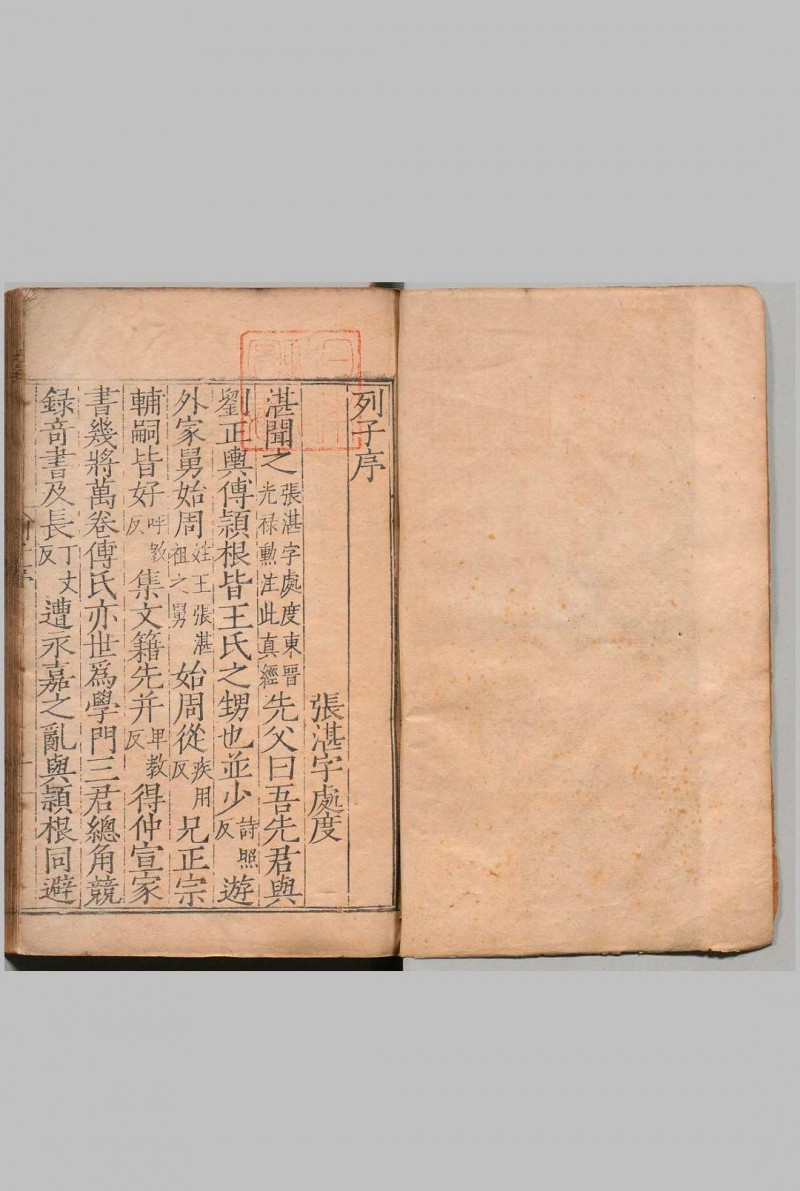 列子序
張湛字處度
湛聞之張湛字處度東晉光祿勲注此真經先父曰吾先君與
劉正輿傅頴根皆王氏之甥也並少詩照反遊
外家舅始周姓王張湛祖之舅始周從疾用反兄正宗
輔嗣皆好呼教反集文籍先并卑教反得仲宣家
書幾將萬卷傅氏亦世爲學門三君總角競
録竒書及長丁丈反遭永嘉之亂與頴根同避